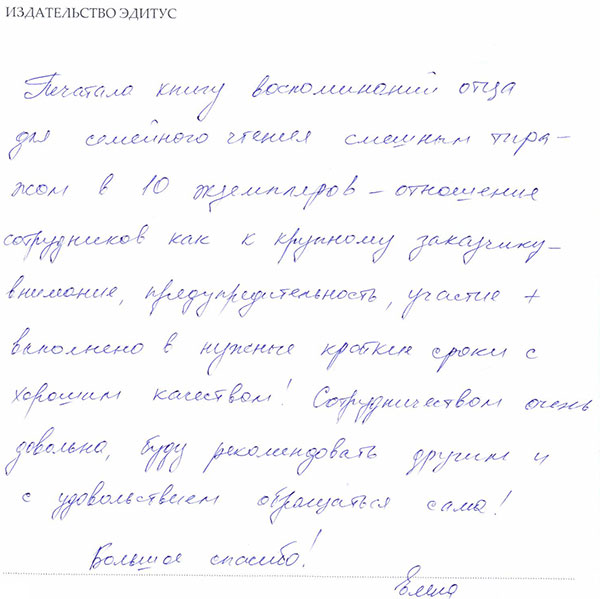 ИЗДАТЕЛЬСТВО ЭДИТУС
Печатала книгу воспоминаний отца
для семейного чтения смешным тира-
жом в 10 экземпляров – отношение
сотрудников как к крупному заказчику –
внимание, предупредительность, участие +
выполнено в нужные краткие сроки с
хорошим качеством! Сотрудничеством очень
довольна, буду рекомендовать другим и
с удовольствием обращаться сама!
Большое спасибо!
Елена